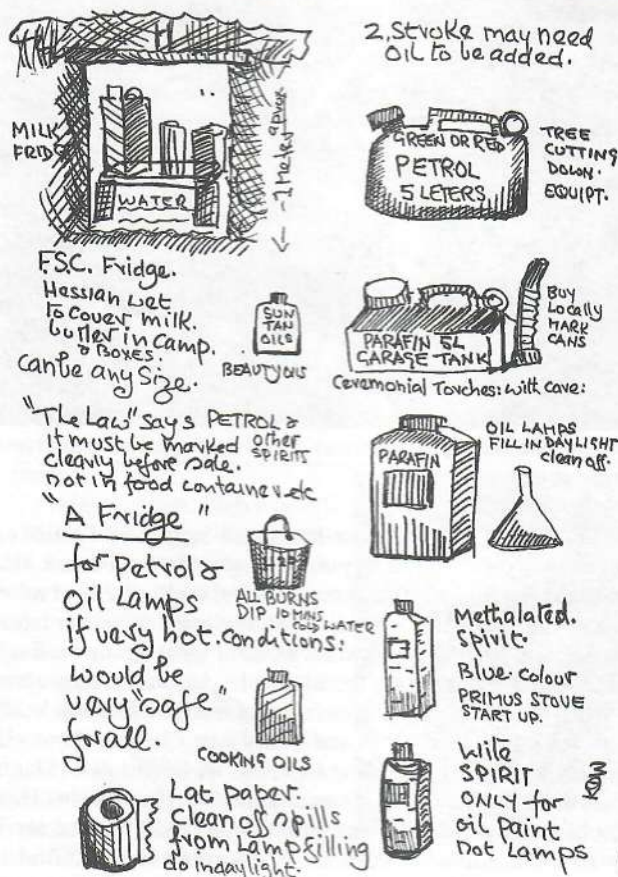 MILK
FRIDGE
WATER
1 Meter aprox
F.S.C. Fridge.
Hessian wet
to cover milk.
butter in camp.
& BOXES.
can be any Size.
SUN
TAN
OILS
BEAUTY OILS
"The Law" says PETROL &
other
SPIRITS
it must be marked
clearly before sale.
not in food container etc
"A Fridge"
for Petrol &
Oil Lamps
If very hot. conditions:
would be
very "safe"
for all.
ALL BURNS
DIP 10 MINS
COLD WATER
COOKING OILS
Lat paper.
Clean off spills
from Lamp filling
do in daylight.
2. Stroke may need
OIL to be added.
GREEN OR RED
PETROL
5 LETERS
TREE
CUTTING
DOWN.
EQUIPT.
PARAFIN 5L
GARAGE TANK
BUY
LOCALLY
MARK
CANS
Ceremonial Torches: with care:
PARAFIN
OIL LAMPS
FILL IN DAYLIGHT
clean off.
Methalated.
Spirit.
Blue. colour
PRIMUS STOVE
START UP.
Wite
SPIRIT
ONLY for
oil paint
not Lamps